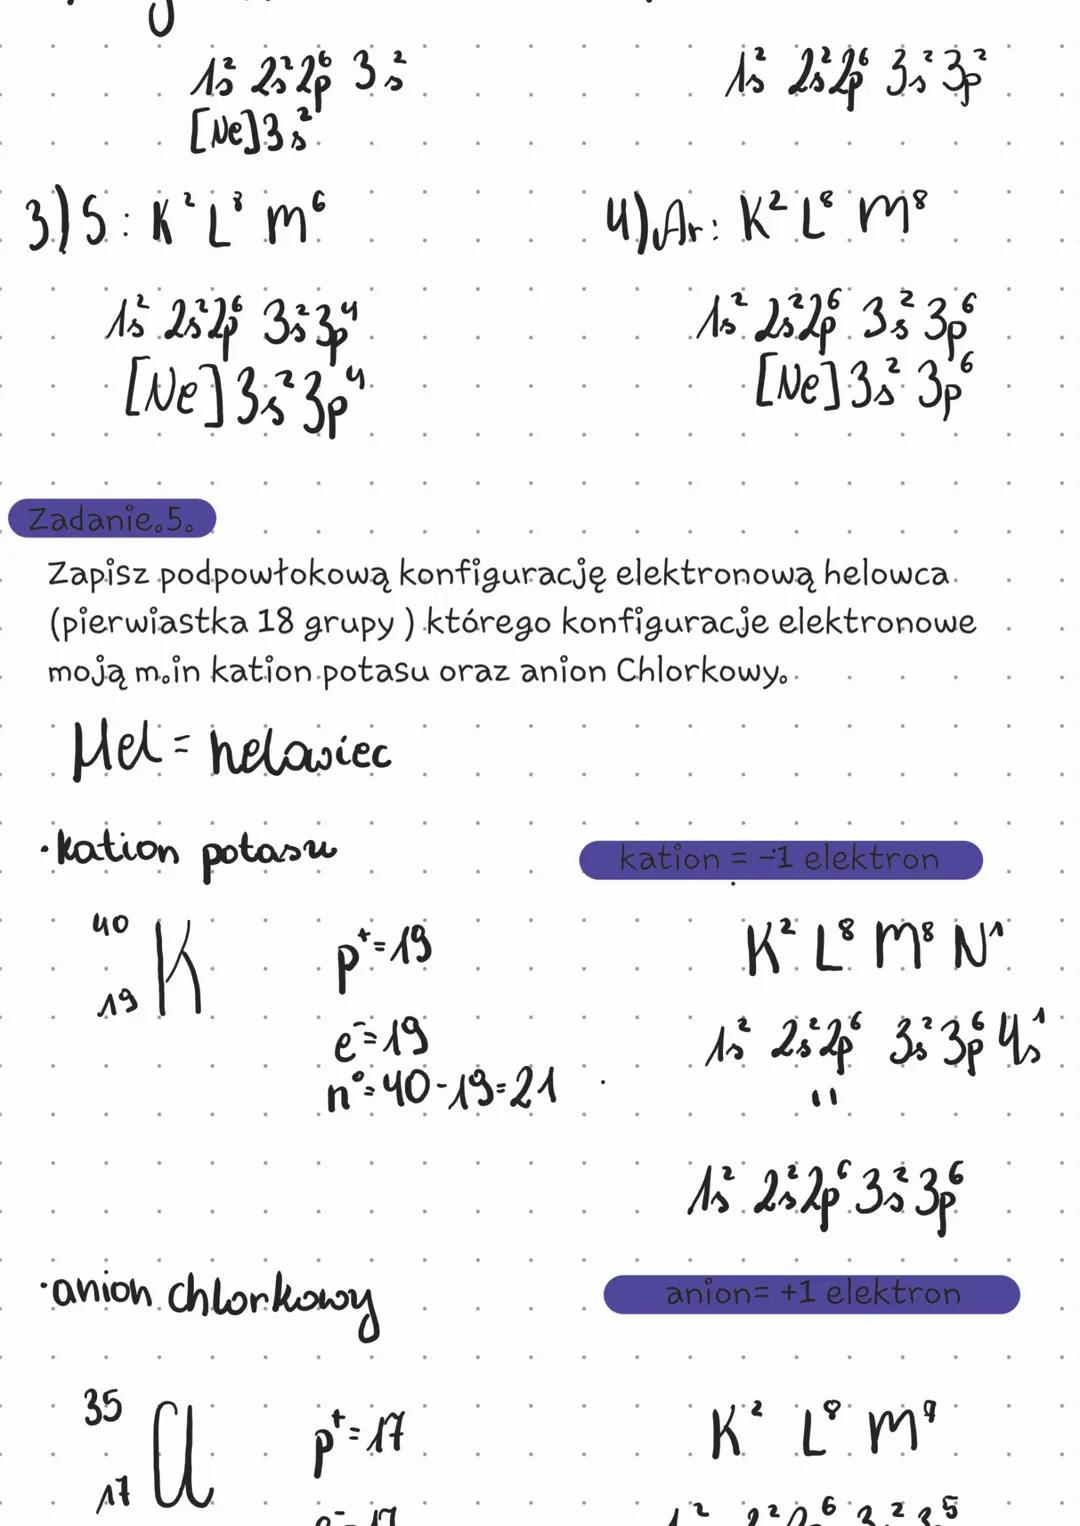 1s² 2s²2p⁶ 3s²
[Ne]3s²
1s² 2s²2p⁶ 3s²3p²
3) S: K² L⁸ M⁶
1s² 2s²2p⁶ 3s²3p⁴
[Ne]3s²3p⁴
4) Ar: K² L⁸ M⁸
1s² 2s²2p⁶ 3s²3p⁶
[Ne]3s²3p⁶
Zadanie.5.
Zapisz podpowłokową konfigurację elektronową helowca
(pierwiastka 18 grupy ) którego konfiguracje elektronowe
moją m.in kation potasu oraz anion Chlorkowy.
Hel = helowiec
·kation potasu
kation = -1 elektron
⁴⁰₁₉K
p⁺=19
e⁻=19
n⁰=40-19=21
K² L⁸ M⁸ N¹
1s² 2s²2p⁶ 3s²3p⁶ 4s¹
"
1s² 2s²2p⁶ 3s²3p⁶
·anion chlorkowy
anion= +1 elektron
³⁵₁₇Cl
p⁺=17
e⁻=17
K² L⁸ M⁷
1s² 2s²2p⁶ 3s²3p⁵